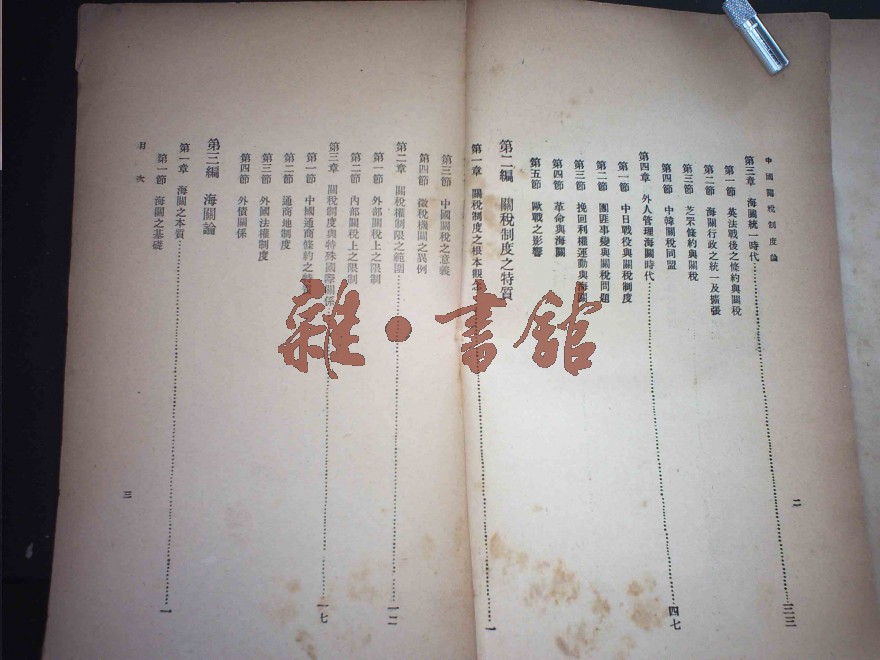 中國關稅制度論
第三章 海關統一時代……三三
第一節 英法戰後之條約與關稅
第二節 海關行政之統一及擴張
第三節 芝罘條約與關稅
第四節 中韓關稅同盟
第四章 外人管理海關時代……四七
第一節 中日戰役與關稅制度
第二節 團匪事變與關稅問題
第三節 挽回利權運動與海關
第四節 革命與海關
第五節 歐戰之影響
二
第二編 關稅制度之特質
第一章 關稅制度之根本觀念……一
第三節 中國關稅之意義
第四節 徵稅機關之異例
第二章 關稅權制限之範圍……一二
第一節 外部關稅上之限制
第二節 內部關稅上之限制
第三章 關稅制度與特殊國際關係……一七
第一節 中國通商條約之
第二節 通商地制度
第三節 外國法權制度
第四節 外債關係
第三編 海關論
第一章 海關之本質……一
第一節 海關之基礎
目次
三
雜·書館